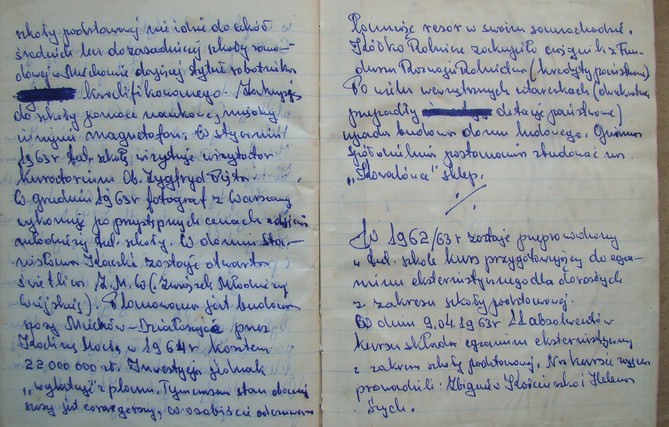 szkoły podstawowej nie idzie do szkół
średnich lecz do zasadniczej szkoły zawo-
dowej w Miechowie dającej tytuł robotnika
kwalifikowanego. Zakupuje
do szkoły pomoc naukową
w rejua magnetofon. W styczniu
1963r tut. szkołę wizytuje wizytator
kuratorium Ob. Zygfryd
W grudniu 1963r fotograf z Warszawy
wykonuje po przystępnych cenach zdjęcia
młodzieży tut. szkoły. W domu Sta-
nisława zostaje otwarta
świetlica Z.M.W (Związek Młodzieży
Wiejskiej). Planowana jest budowa
szosy Miechów - Działoszyce przez
w 1964r kosztem
22,000 000 zł. Inwestycja jednak
"wyleciała" z planu. Tymczasem stan obecnej
szosy jest coraz gorszy, co osobiście odczuwam
Łamiąc resor w swoim samochodzie.
Kółko Rolnicze zakupiło ciągnik z Fun-
duszu Rozwoju Rolnictwa (kredyty państwowe)
Po wielu wewnętrznych utarczkach
przepadły dotacje państwowe)
upada budowa domu ludowego. Gminna
Spółdzielnia postanawia zbudować tzw.
sklep.
W 1962/63r zostaje przeprowadzony
w tut. szkole kurs przygotowujący do egza-
minu eksternistycznego dla dorosłych
z zakresu szkoły podstawowej.
W dniu 9.04.1963r 11 absolwentów
kursu składa egzamin eksternistyczny
z zakresu szkoły podstawowej. Na kursie zajęcia
prowadzili: Zbigniew Kościuszko i Helena